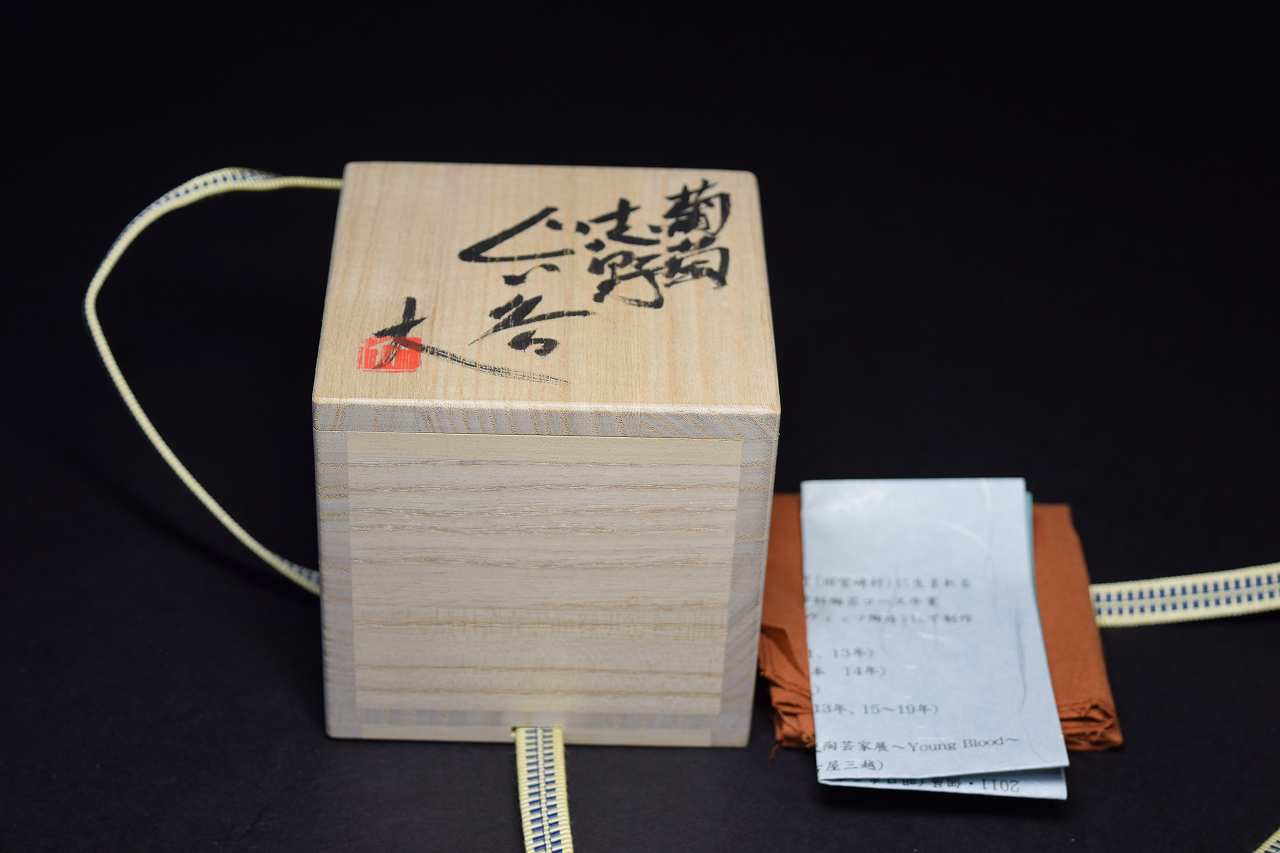 葡萄
志野
ぐい呑
大
(旧宮崎村)に生まれる
科陶芸コース卒業
にて制作
、13年)
本 14年)
)
13年、15～19年)
陶芸家展～Young Blood～
屋三越)
2011・個展